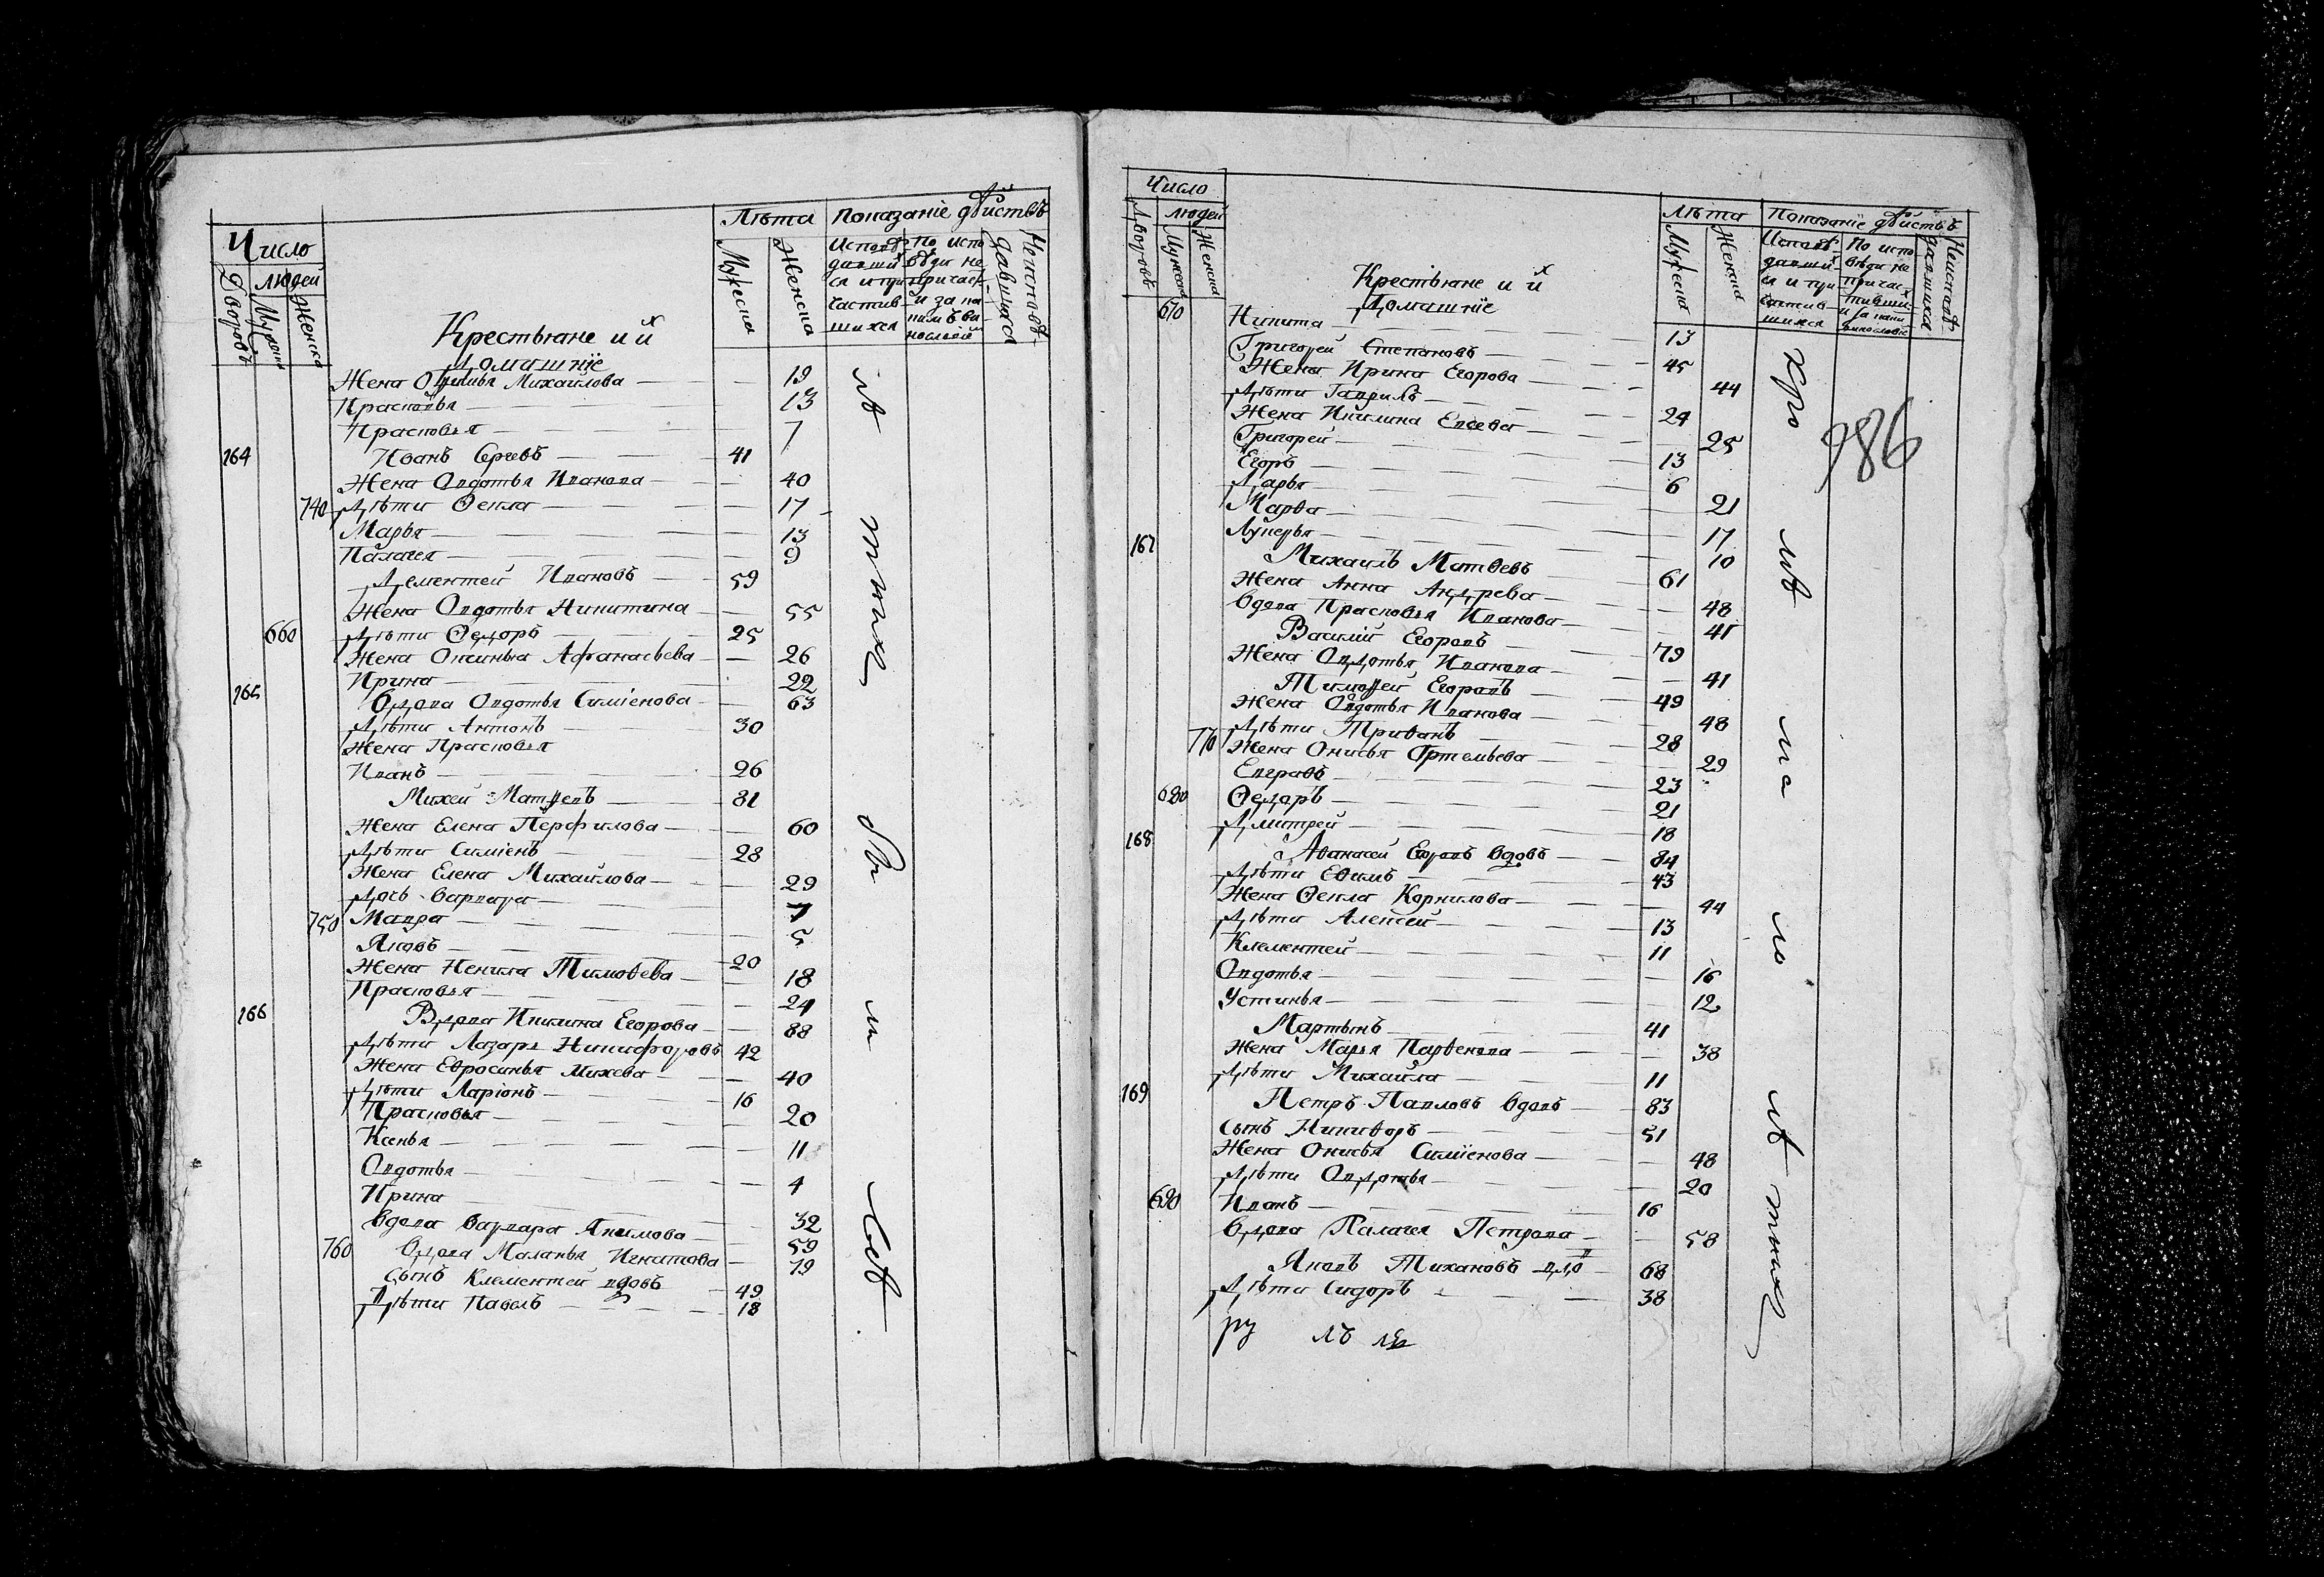 Число
Дворовъ
людей
Мужеска
Женска
Крестьяне и их
Домашніе
Лѣта
Мужеска
Женска
Показаніе действъ
Исповѣ-
давши-
ся и при-
частив-
шихся
По испо
вѣди не
причас-
и за ка
кимъ ви
нословіе
Неисповѣ-
давшихся
Жена Офимья Михайлова — 19
Прасковья — 13
Прасковья — 7
164 Иванъ Сергевъ — 41
Жена Овдотья Иванова — 40
740 Дѣти Ѳекла — 17
Марья — 13
Палагея — 9
Дементей Ивановъ — 59
Жена Овдотья Никитина — 55
660 Дѣти Ѳедоръ — 25
Жена Оксинья Афанасьева — 26
Ирина — 22
165 Вдова Овдотья Симіенова — 63
Дѣти Антонъ — 30
Жена Прасковья
Иванъ — 26
Михей Матфевъ — 81
Жена Елена Перфилова — 60
Дѣти Симіенъ — 28
Жена Елена Михайлова — 29
Дочь Варвара — 7
750 Мавра — 5
Яковъ — 20
Жена Ненила Тимоѳева — 18
Прасковья — 24
166 Вдова Акилина Егорова — 88
Дѣти Лазарь Никифоровъ 42
Жена Евросинья Михева — 40
Дѣти Ларіонъ — 16
Прасковья — 20
Ксенья — 11
Овдотья — 4
Ирина — 32
Вдова Варвара Якимова — 59
760 Вдова Маланья Игнатова — 79
Сынъ Клементей вдовъ — 49
Дѣти Павелъ — 18
Число
Дворовъ
людей
Мужеска
Женска
Крестьяне и их
Домашніе
Лѣта
Мужеска
Женска
Показаніе действъ
Исповѣ-
давши-
ся и при-
частив-
шихся
По испо
вѣди не
причас-
тивши-
и за каки
винословіе
Неисповѣ-
давшихся
670 Никита — 13
Григорей Степановъ — 45
Жена Ирина Егорова — 44
Дѣти Гаврилъ — 24
Жена Акилина Евсева — 25
Григорей — 13
Егоръ — 6
Дарья — 21
Марѳа — 17
Лукерья — 10
167 Михаилъ Матѳевъ — 61
Жена Анна Андрева — 48
Вдова Прасковья Иванова — 41
Василій Егоровъ — 79
Жена Овдотья Иванова — 41
Тимофей Егоровъ — 49
Жена Овдотья Иванова — 48
Дѣти Триѳанъ — 28
770 Жена Онисья Ортемьева — 29
Евграѳъ — 23
680 Ѳедоръ — 21
Дмитрей — 18
168 Аѳанасей Егоровъ вдовъ — 84
Дѣти Еѳимъ — 43
Жена Ѳекла Корнилова — 44
Дѣти Алексей — 13
Клементей — 11
Овдотья — 16
Устинья — 12
Мартынъ — 41
Жена Марья Парѳенова — 38
Дѣти Михайла — 11
169 Петръ Павловъ вдовъ — 83
Сынъ Никиѳоръ — 51
Жена Онисья Симіенова — 48
Дѣти Овдотья — 20
690 Иванъ — 16
Вдова Палагея Петрова — 58
Яковъ Тихановъ вдо — 68
Дѣти Сидоръ — 38
786